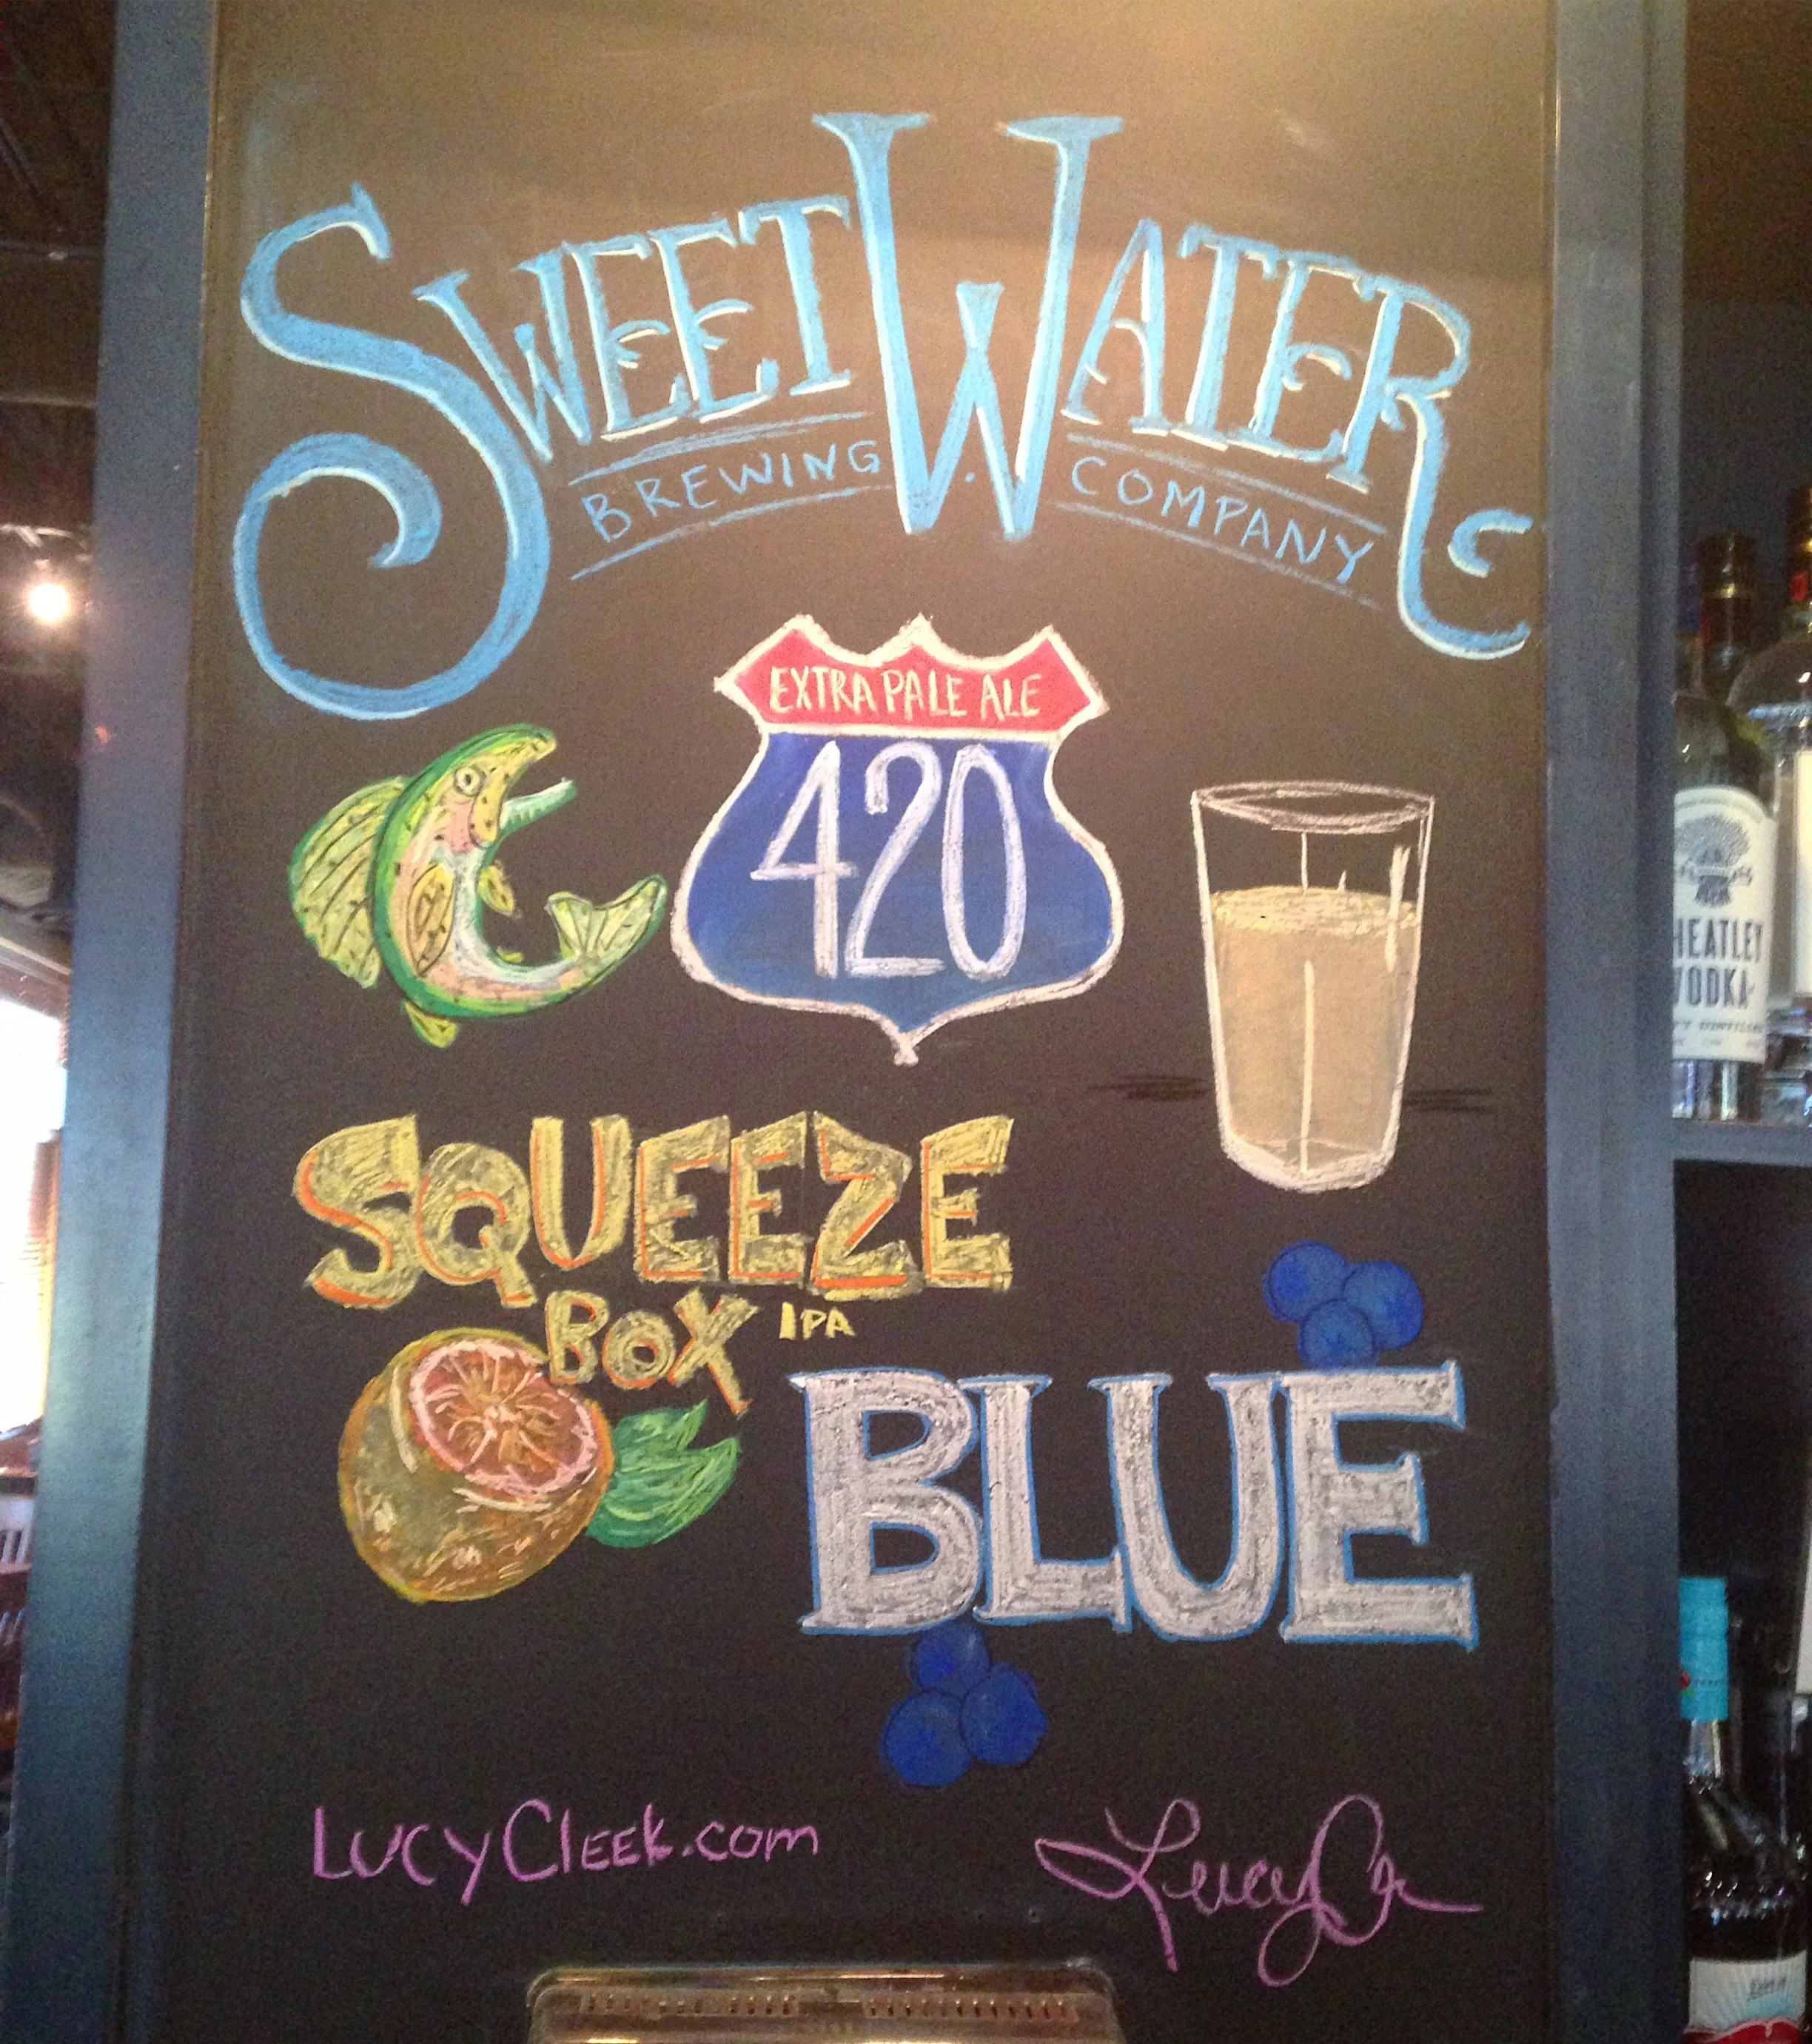 SWEETWATER
BREWING COMPANY
EXTRA PALE ALE
420
SQUEEZE
BOX IPA
BLUE
LUCYCLEEK.com
HEATLEY
VODKA